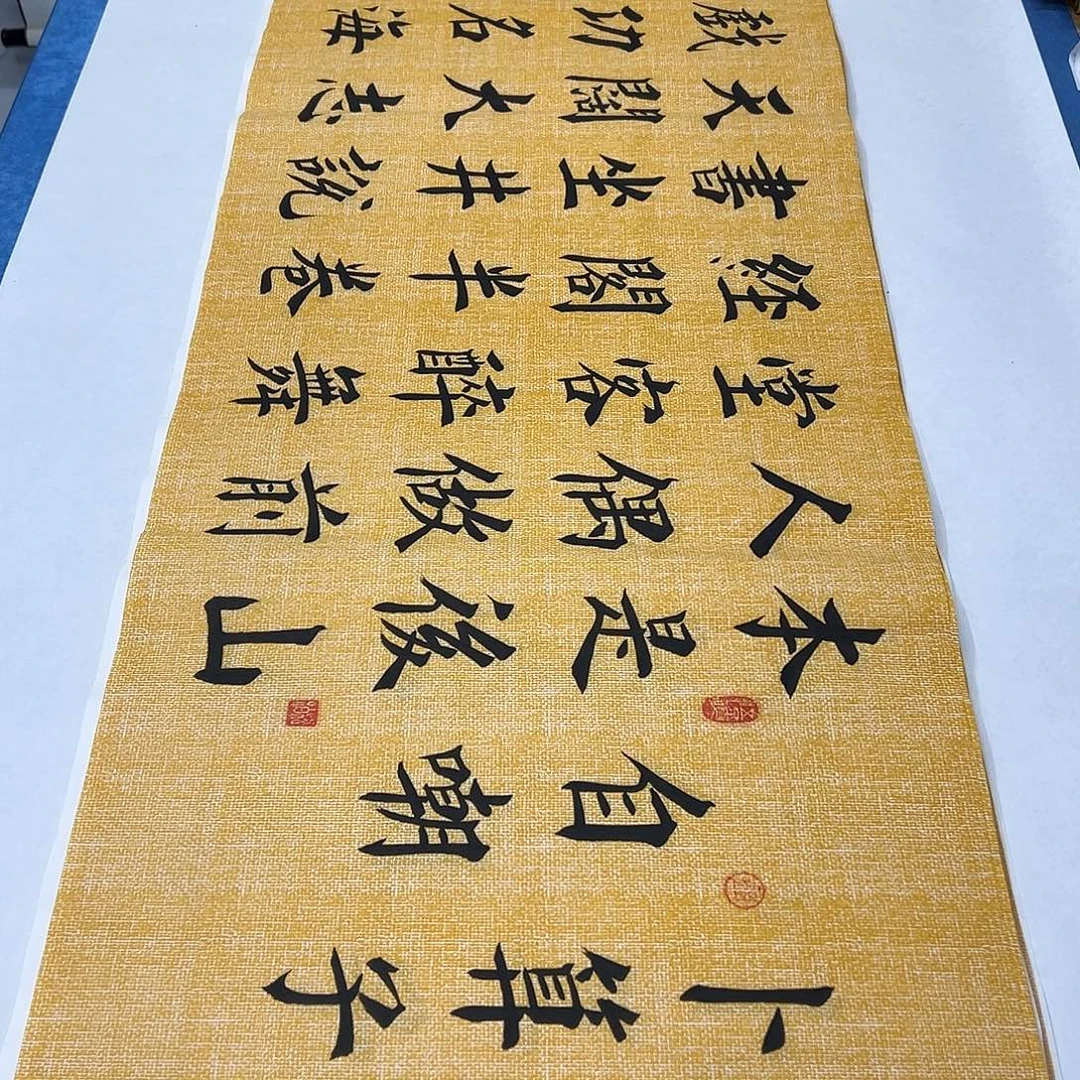 卜算子
自嘲
本是後山
人偶做前
堂客醉舞
經閣半卷
書坐井說
天闊大志
戲功名海